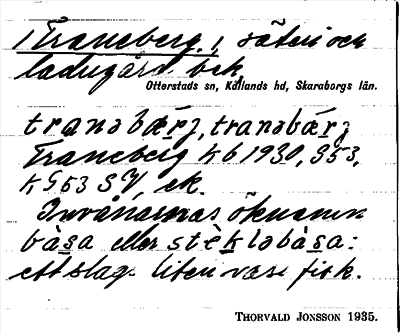 Traneberg, 1 säteri och
ladugård bek.
Otterstads sn, Kållands hd, Skaraborgs län.
tranəbærj, tranəbærj
Traneberg kb 1930, G53,
k G53 SV, ek.
Invånarnas öknamn
bàsa eller stèkləbàsa:
ett slags liten vass fisk.
THORVALD JONSSON 1935.